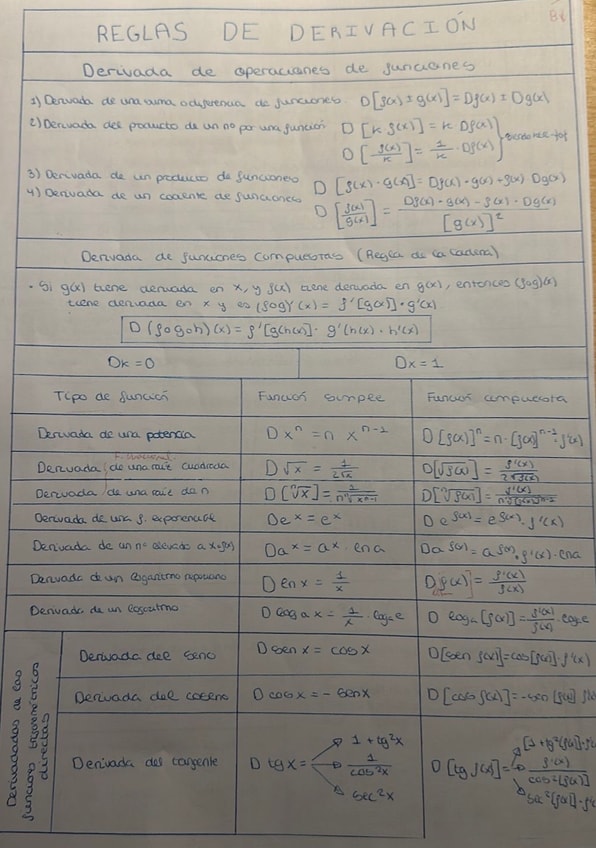 REGLAS DE DERIVACIÓN
Derivada de operaciones de funciones
1) Derivada de una suma o diferencia de funciones. D[f(x) ± g(x)] = Df(x) ± Dg(x)
2) Derivada del producto de un nº por una función D[k f(x)] = k Df(x)
D[f(x)/k] = 1/k · Df(x)
3) Derivada de un producto de funciones D[f(x) · g(x)] = Df(x) · g(x) + f(x) Dg(x)
4) Derivada de un cociente de funciones D[f(x)/g(x)] = Df(x) · g(x) - f(x) · Dg(x) / [g(x)]²
Derivada de funciones compuestas (Regla de la cadena)
· Si g(x) tiene derivada en x, y f(x) tiene derivada en g(x), entonces (fog)(x)
tiene derivada en x y es (fog)'(x) = f'[g(x)] · g'(x).
D(fogoh)(x) = f'[g(h(x)] · g'(h(x) · h'(x)
Dk = 0 Dx = 1
Tipo de función Función simple Función compuesta
Derivada de una potencia D xⁿ = n xⁿ⁻¹ D[f(x)]ⁿ = n · [f(x)]ⁿ⁻¹ · f'(x)
Derivada de una raíz cuadrada D√x = 1/2√x D[√f(x)] = f'(x)/2√f(x)
Derivada de una raíz de n D[ⁿ√x] = 1/n ⁿ√xⁿ⁻¹ D[ⁿ√f(x)] = f'(x)/n ⁿ√f(x)ⁿ⁻¹
Derivada de una f. exponencial Deˣ = eˣ D e^f(x) = e^f(x) · f'(x)
Derivada de un nº elevado a x · f(x) Daˣ = aˣ · ln a Da^f(x) = a^f(x) · f'(x) · ln a
Derivada de un logaritmo neperiano D ln x = 1/x D[f(x)] = f'(x)/f(x)
Derivada de un logaritmo D logₐ x = 1/x · logₐ e D logₐ [f(x)] = f'(x)/f(x) · logₐ e
Derivadas de las funciones trigonométricas directas
Derivada del seno D sen x = cos x D[sen f(x)] = cos[f(x)] · f'(x)
Derivada del coseno D cos x = - sen x D[cos f(x)] = -sen [f(x)] f'(x)
Derivada del tangente D tg x = 1 + tg²x D[tg f(x)] = [1 + tg²(f(x)] · f'
1/cos²x f'(x)/cos²[f(x)]
sec²x sec²[f(x)] · f'